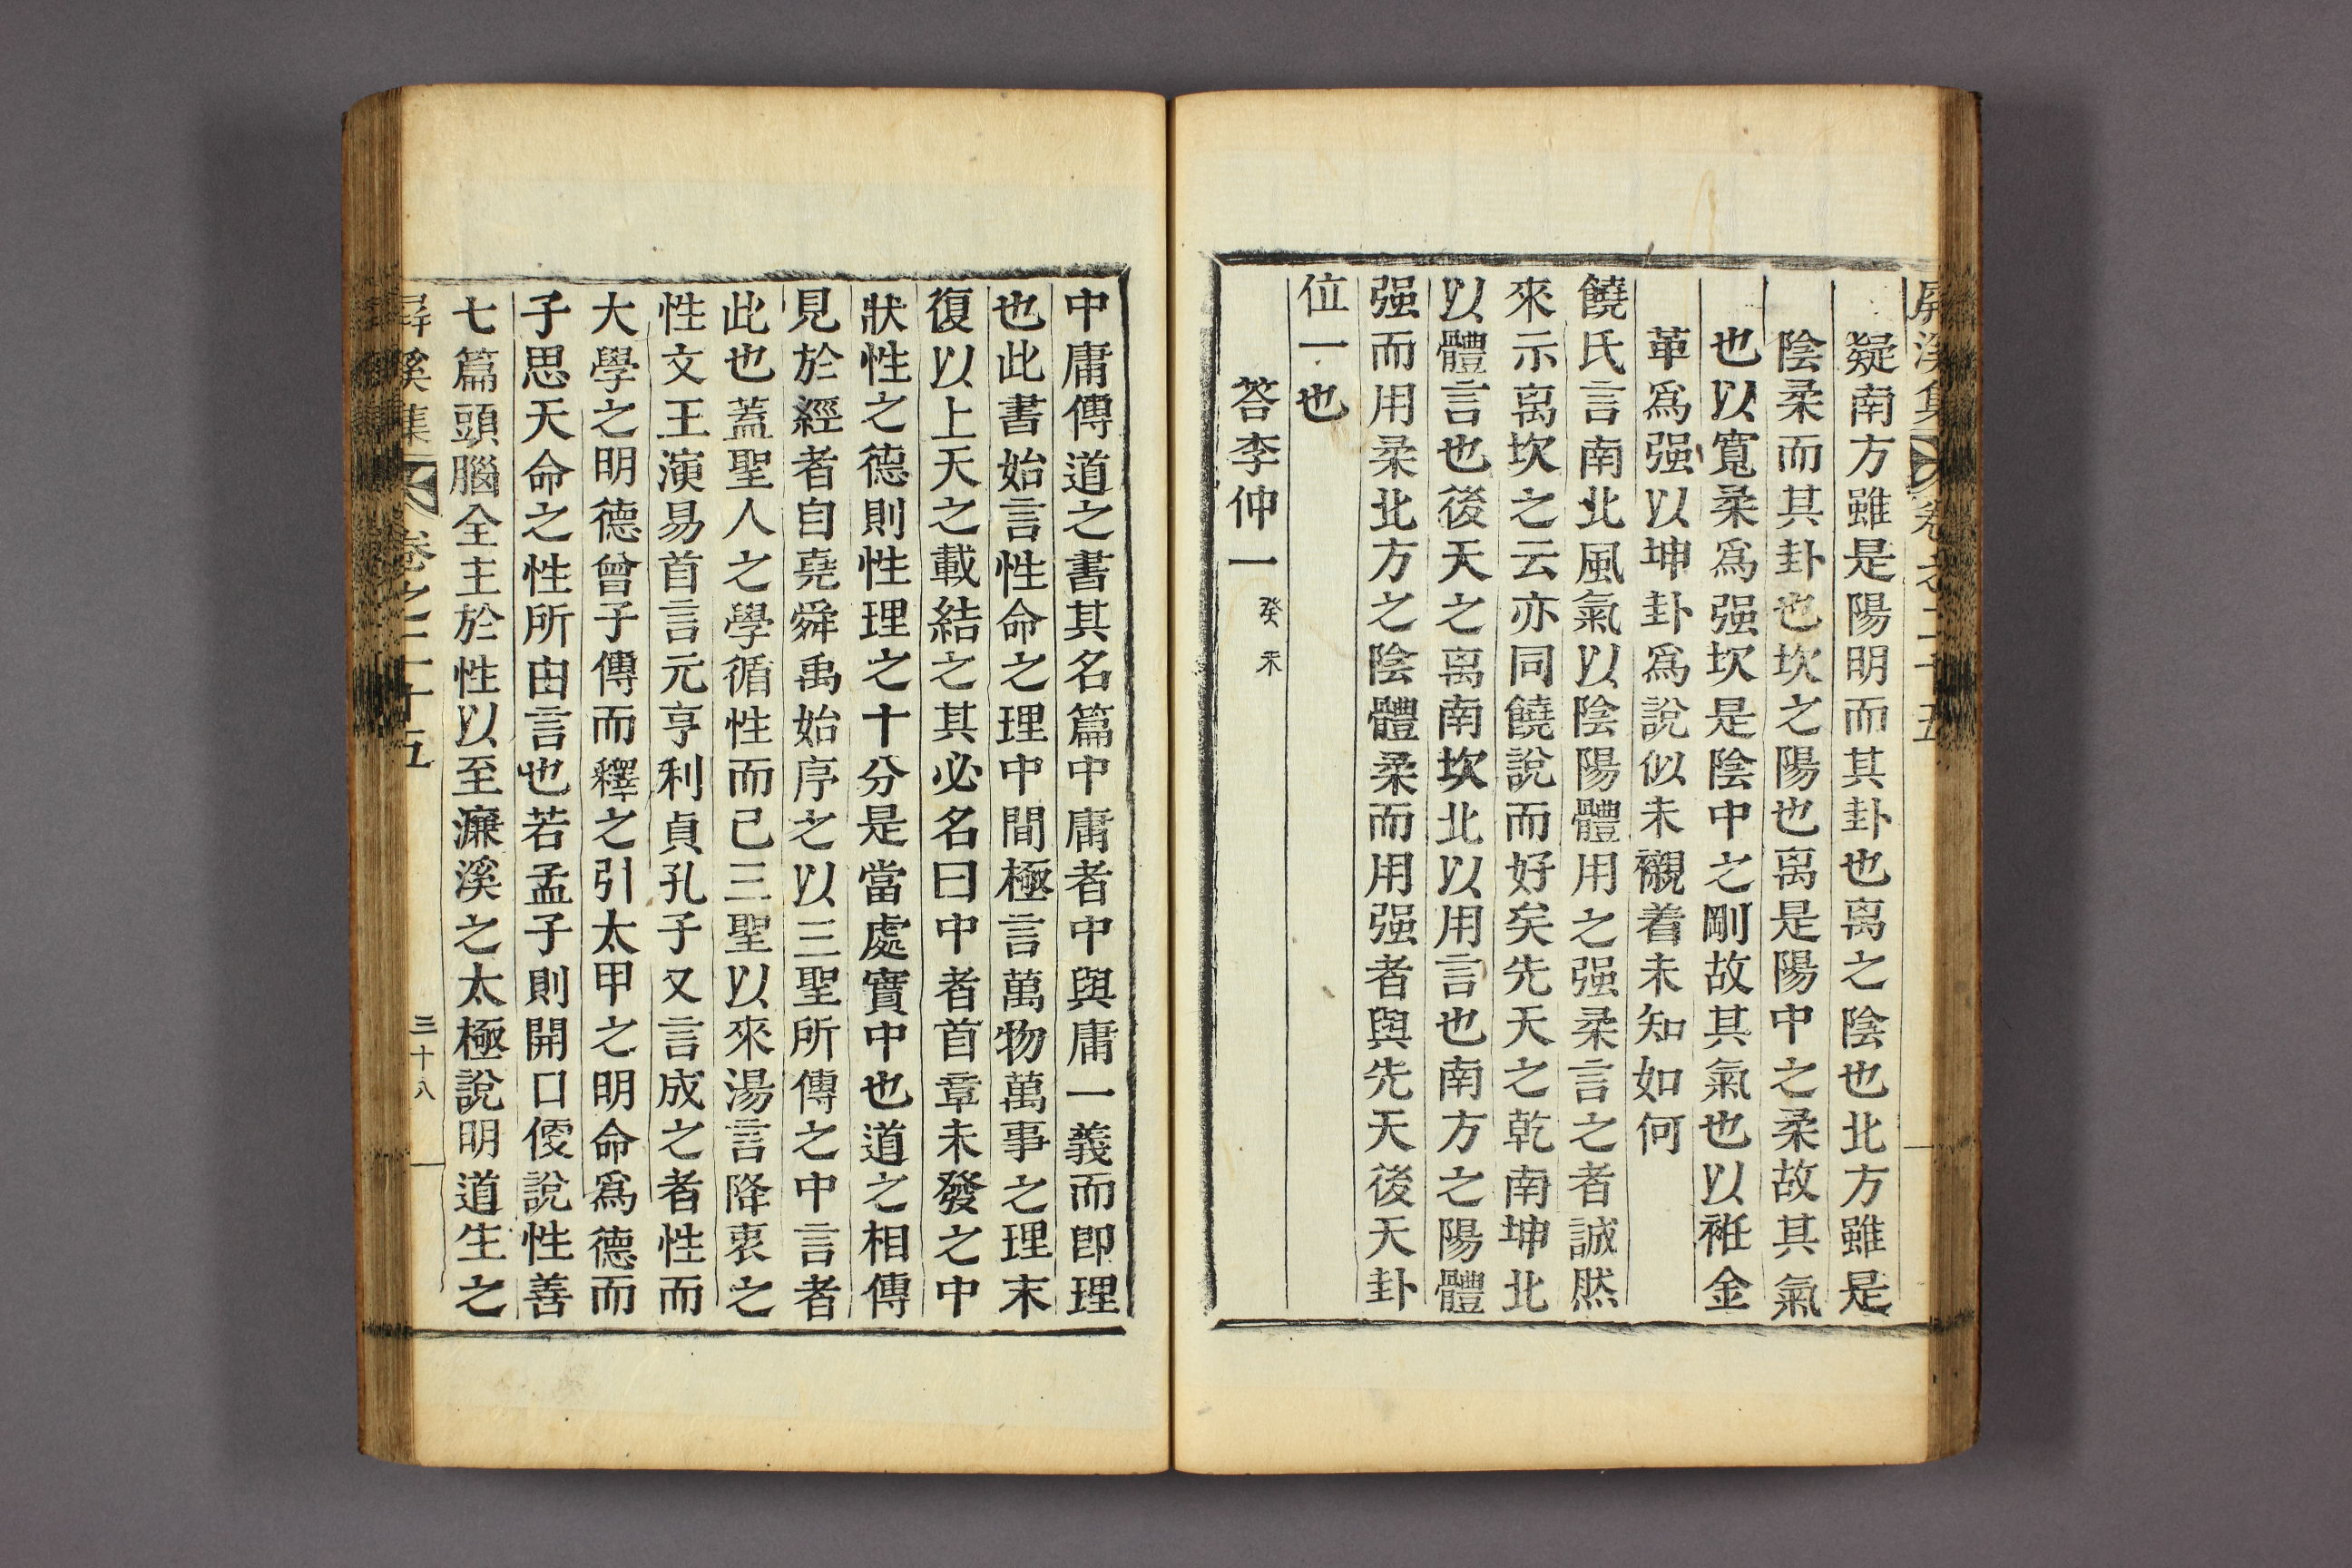 屛溪集 卷之二十五
疑南方雖是陽明而其卦也离之陰也北方雖是
陰柔而其卦也坎之陽也离是陽中之柔故其氣
也以寬柔爲强坎是陰中之剛故其氣也以袵金
革爲强以坤卦爲說似未襯着未知如何
饒氏言南北風氣以陰陽體用之强柔言之者誠然
來示离坎之云亦同饒說而好矣先天之乾南坤北
以體言也後天之离南坎北以用言也南方之陽體
强而用柔北方之陰體柔而用强者與先天後天卦
位一也
答李仲一 癸未
中庸傳道之書其名篇中庸者中與庸一義而卽理
也此書始言性命之理中間極言萬物萬事之理末
復以上天之載結之其必名曰中者首章未發之中
狀性之德則性理之十分是當處實中也道之相傳
見於經者自堯舜禹始序之以三聖所傳之中言者
此也蓋聖人之學循性而已三聖以來湯言降衷之
性文王演易首言元亨利貞孔子又言成之者性而
大學之明德曾子傳而釋之引太甲之明命爲德而
子思天命之性所由言也若孟子則開口便說性善
七篇頭腦全主於性以至濂溪之太極說明道生之
屛溪集 卷之二十五 三十八